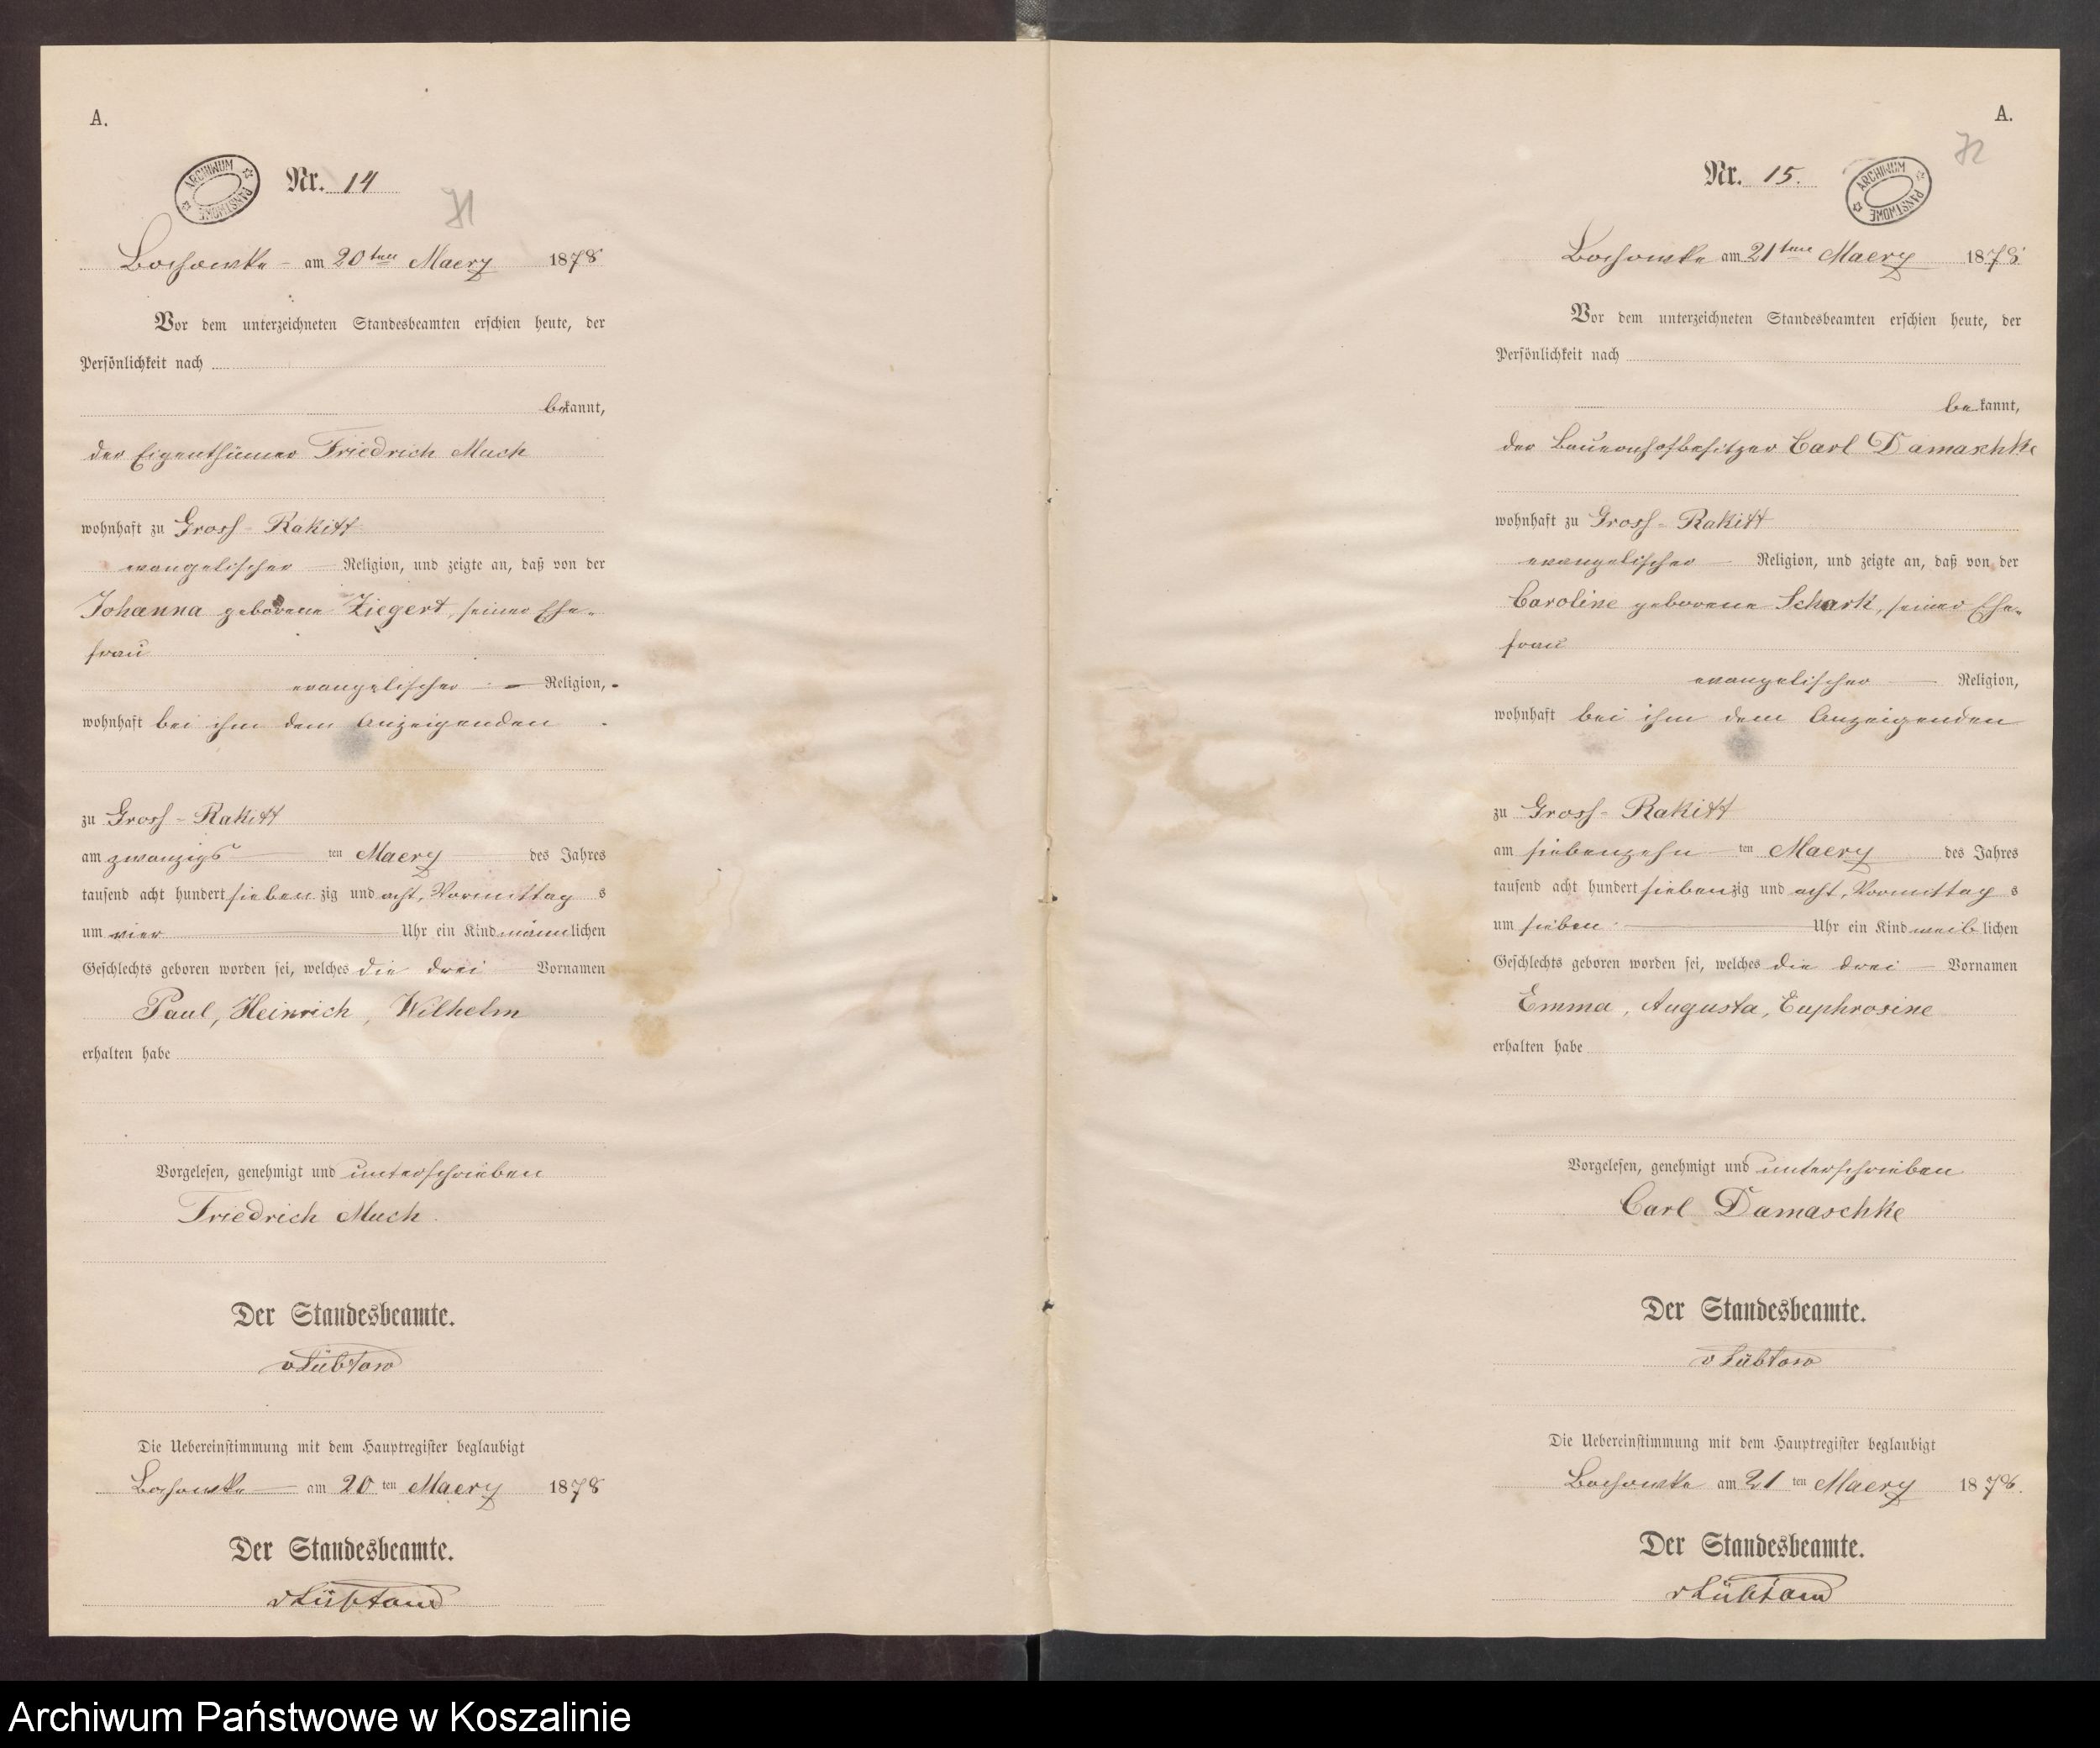 A.
ARCHIWUM PAŃSTWOWE
Nr. 14
71
Bochowke am 20ten Maerz 1878
Vor dem unterzeichneten Standesbeamten erschien heute, der
Persönlichkeit nach
bekannt,
der Eigenthümer Friedrich Much
wohnhaft zu Gross-Rakitt
evangelischer Religion, und zeigte an, daß von der
Johanna geborene Ziegert, seiner Ehe-
frau
evangelischer Religion,
wohnhaft bei ihm dem Anzeigenden
zu Gross-Rakitt
am zwanzigs ten Maerz des Jahres
tausend acht hundert siebenzig und acht, Vormittags
um vier Uhr ein Kind männlichen
Geschlechts geboren worden sei, welches die drei Vornamen
Paul, Heinrich, Wilhelm
erhalten habe
Vorgelesen, genehmigt und unterschrieben
Friedrich Much.
Der Standesbeamte.
vLübtow
Die Uebereinstimmung mit dem Hauptregister beglaubigt
Bochowke am 20ten Maerz 1878
Der Standesbeamte.
vLübtow
A.
72
Nr. 15.
ARCHIWUM PAŃSTWOWE
Bochowke am 21ten Maerz 1878
Vor dem unterzeichneten Standesbeamten erschien heute, der
Persönlichkeit nach
bekannt,
der Bauernhofbesitzer Carl Damaschke
wohnhaft zu Gross-Rakitt
evangelischer Religion, und zeigte an, daß von der
Caroline geborene Schark, seiner Ehe-
frau
evangelischer Religion,
wohnhaft bei ihm dem Anzeigenden
zu Gross-Rakitt
am siebenzehn ten Maerz des Jahres
tausend acht hundert siebenzig und acht, Vormittags
um sieben Uhr ein Kind weiblichen
Geschlechts geboren worden sei, welches die drei Vornamen
Emma, Augusta, Euphrosine
erhalten habe
Vorgelesen, genehmigt und unterschrieben
Carl Damaschke
Der Standesbeamte.
vLübtow
Die Uebereinstimmung mit dem Hauptregister beglaubigt
Bochowke am 21ten Maerz 1878.
Der Standesbeamte.
vLübtow
Archiwum Państwowe w Koszalinie